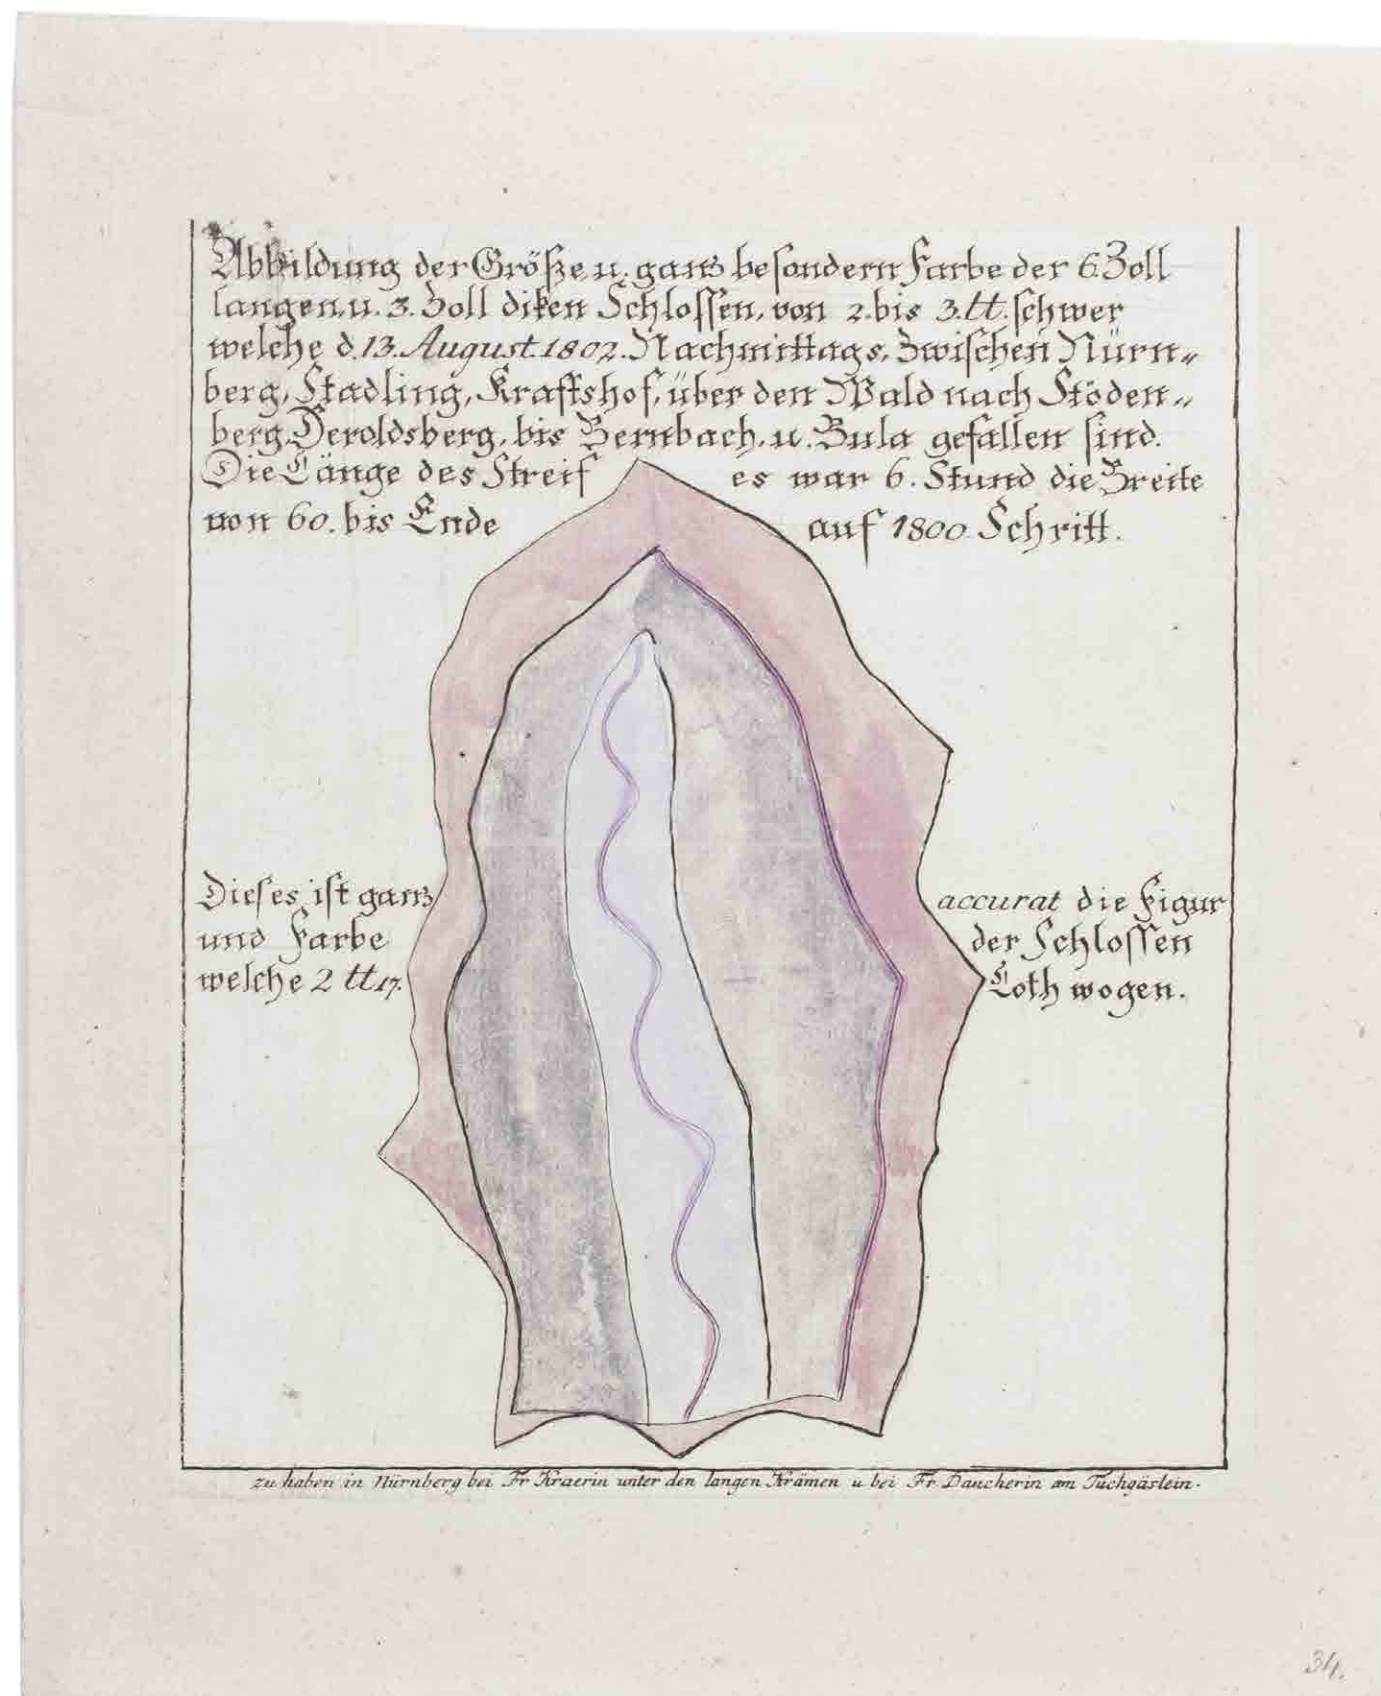 Abbildung der Größe u. ganz besondern Farbe der 6. Zoll
langen, u. 3. Zoll diken Schlossen, von 2. bis 3. tt. schwer
welche d. 13. August. 1802. Nachmittags, zwischen Nürn„
berg, Stadling, Kraftshof, über den Wald nach Stöden„
berg, Heroldsberg, bis Bernbach, u. Bula gefallen sind.
Die Länge des Streif es war 6. Stund die Breite
von 60. bis Ende auf 1800 Schritt.
Dieses ist ganz accurat die Figur
und Farbe der Schlossen
welche 2 tt 17. Loth wogen.
zu haben in Nürnberg bei Fr Kraerin unter den langen Krämen u bei Fr. Daucherin am Tuchgäslein.
34.